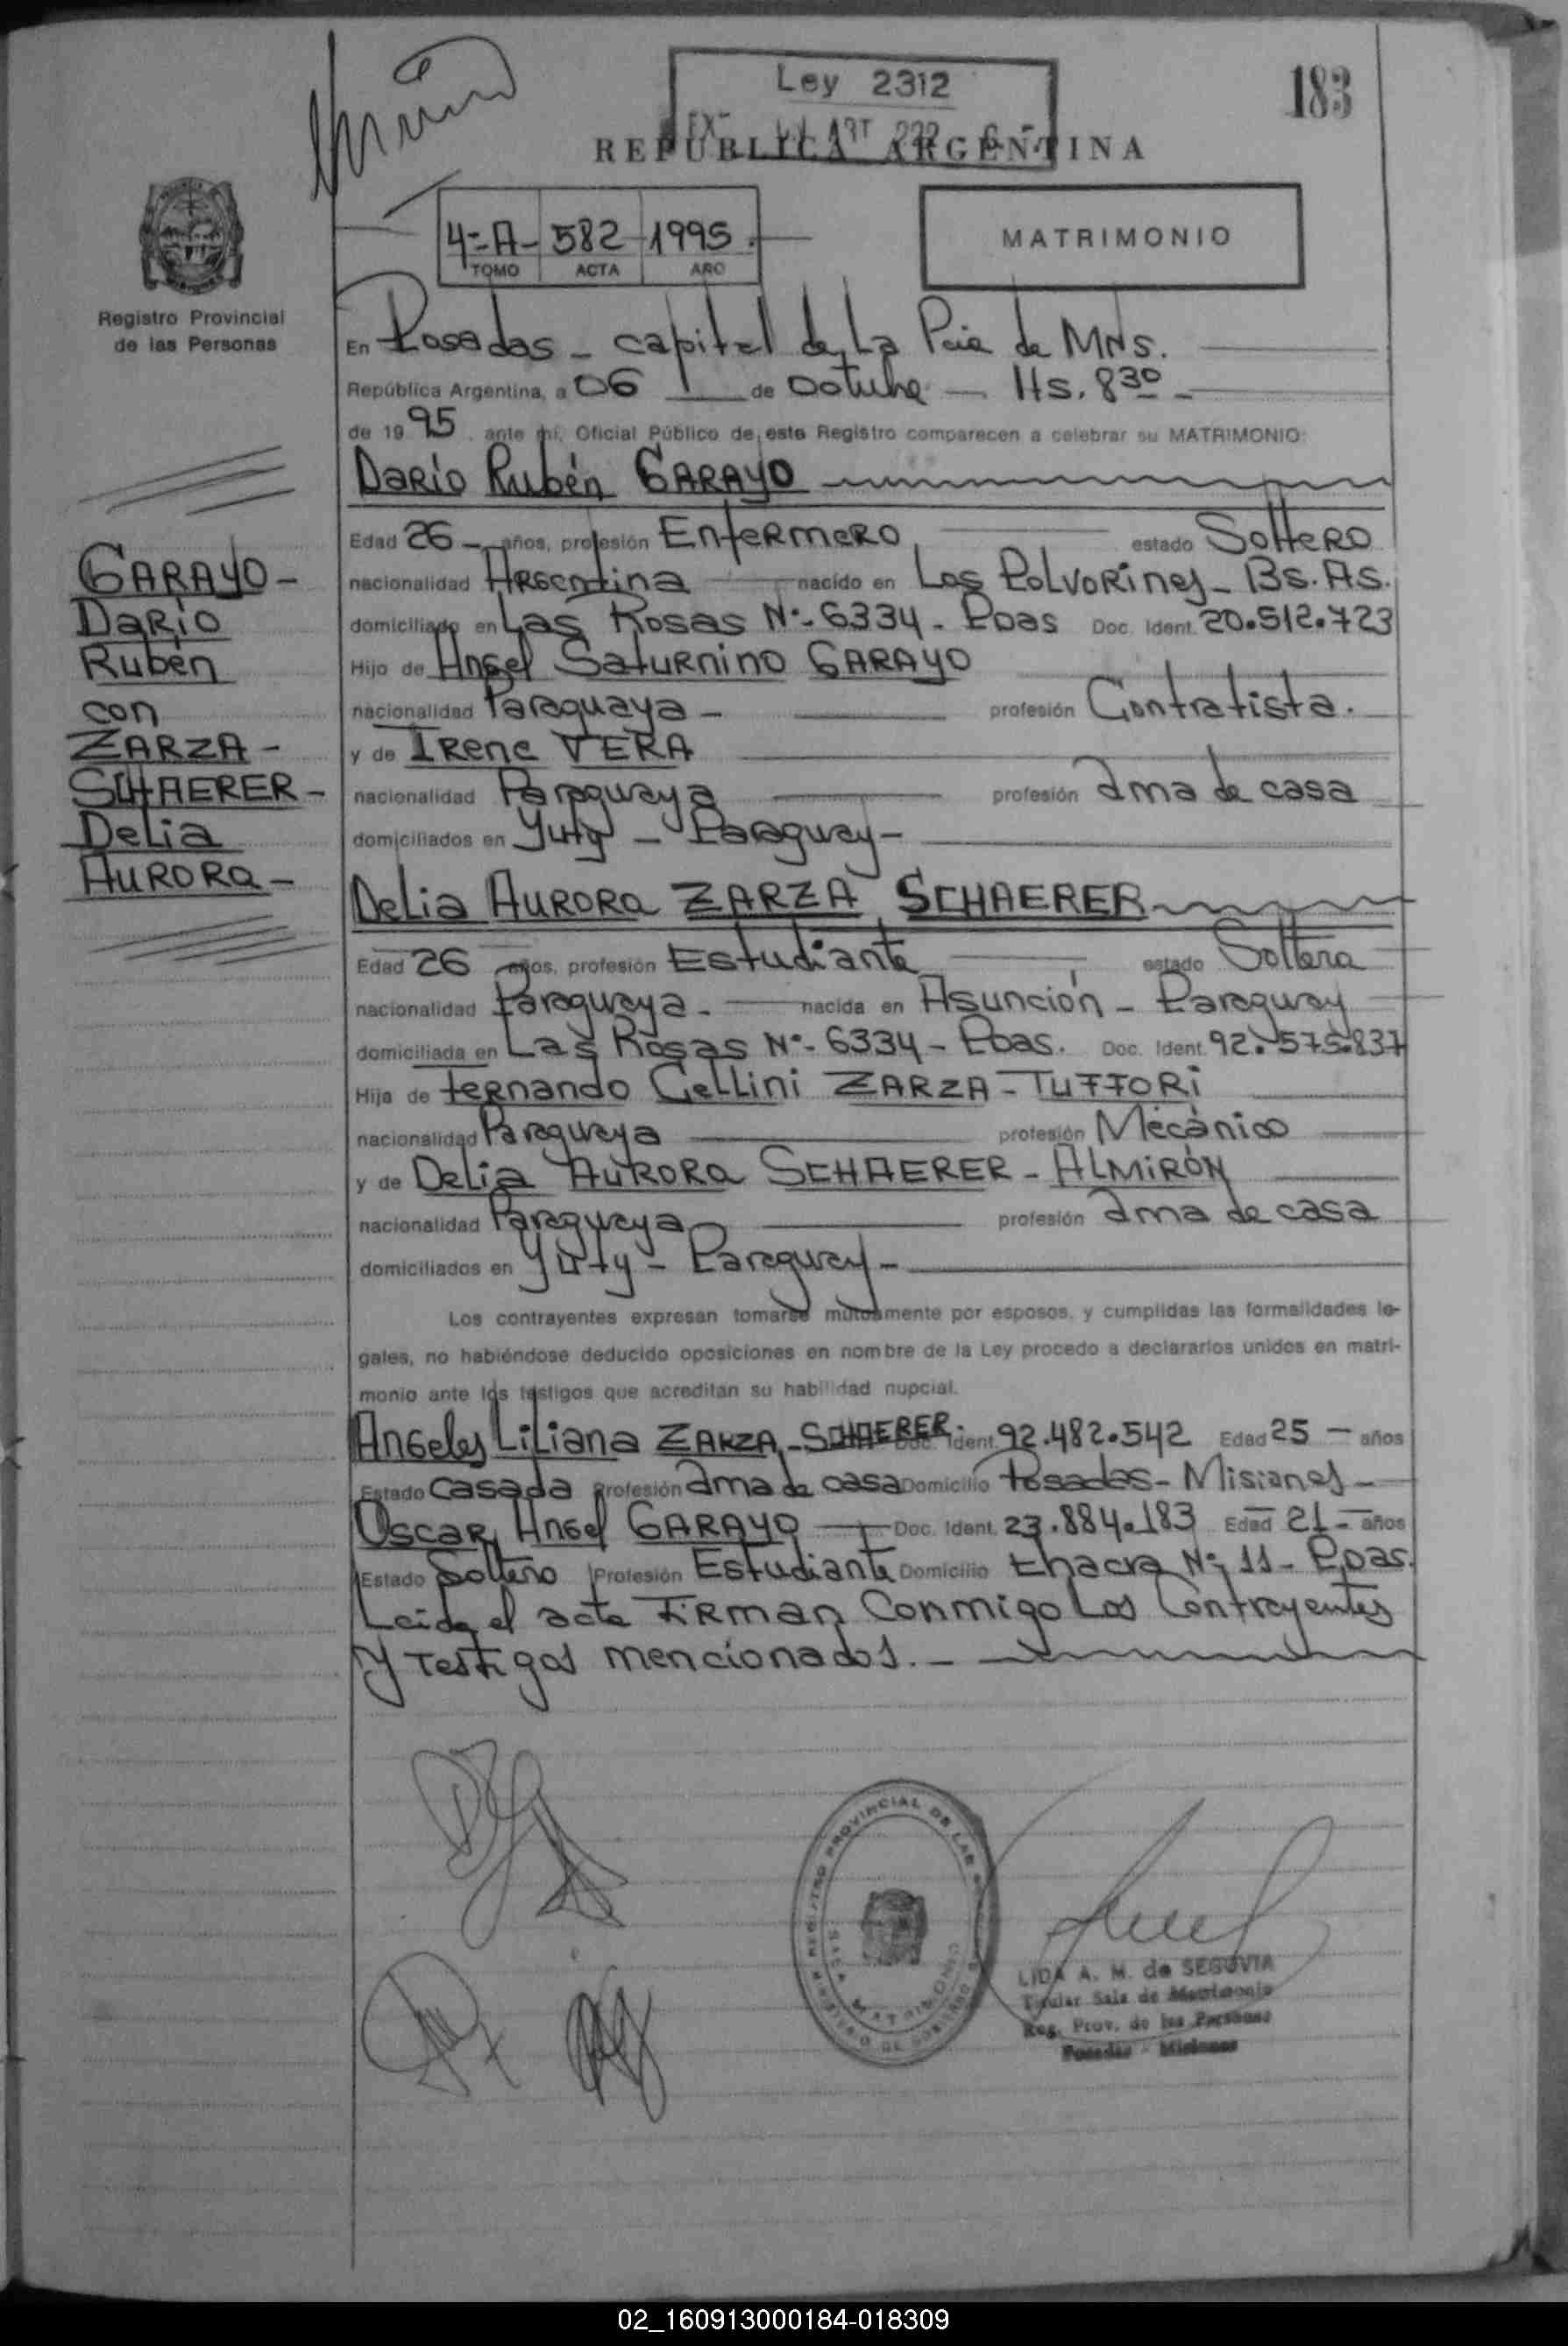 183
Ley 2312
REPUBLICA ARGENTINA
4º-A- 582 1995.
TOMO ACTA AÑO
MATRIMONIO
Registro Provincial
de las Personas
En Posadas - capital de La Pcia de MNS.
República Argentina, a 06 de Octubre - Hs. 8 30 -
de 19 95, ante mí, Oficial Público de este Registro comparecen a celebrar su MATRIMONIO:
Darío Rubén GARAYO
Edad 26 - años, profesión Enfermero estado Soltero
nacionalidad Argentina nacido en Los Polvorines - Bs. As.
domiciliado en Las Rosas Nº- 6334 - Pdas Doc. Ident. 20.512.723
Hijo de Angel Saturnino GARAYO
nacionalidad Paraguaya - profesión Contratista.
y de Irene VERA
nacionalidad Paraguaya profesión ama de casa
domiciliados en Yuty - Paraguay -
Delia Aurora ZARZA SCHAERER
Edad 26 años, profesión Estudiante estado Soltera
nacionalidad Paraguaya - nacida en Asunción - Paraguay
domiciliada en Las Rosas Nº- 6334 - Pdas. Doc. Ident. 92.575.837
Hija de Fernando Cellini ZARZA - TUFFORI
nacionalidad Paraguaya profesión Mecánico
y de Delia Aurora SCHAERER - ALMIRÓN
nacionalidad Paraguaya profesión ama de casa
domiciliados en Yuty - Paraguay -
Los contrayentes expresan tomarse mutuamente por esposos, y cumplidas las formalidades le-
gales, no habiéndose deducido oposiciones en nombre de la Ley procedo a declararlos unidos en matri-
monio ante los testigos que acreditan su habilidad nupcial.
Angeles Liliana ZARZA - SCHAERER. Doc. Ident. 92.482.542 Edad 25 - años
Estado Casada Profesión ama de casa Domicilio Posadas - Misiones -
Oscar Angel GARAYO Doc. Ident. 23.884.183 Edad 21 - años
Estado Soltero Profesión Estudiante Domicilio Chacra Nº 11 - Pdas.
Leida el acta Firman Conmigo Los Contrayentes
y Testigos mencionados. -
GARAYO -
Darío
Rubén
con
ZARZA -
SCHAERER -
Delia
Aurora -
REGISTRO PROVINCIAL DE LAS
MINISTERIO DE GOBIERNO
SALA MATRIMONIO
LIDA A. M. de SEGOVIA
Titular Sala de Matrimonio
Reg. Prov. de las Personas
Posadas - Misiones
02_160913000184-018309